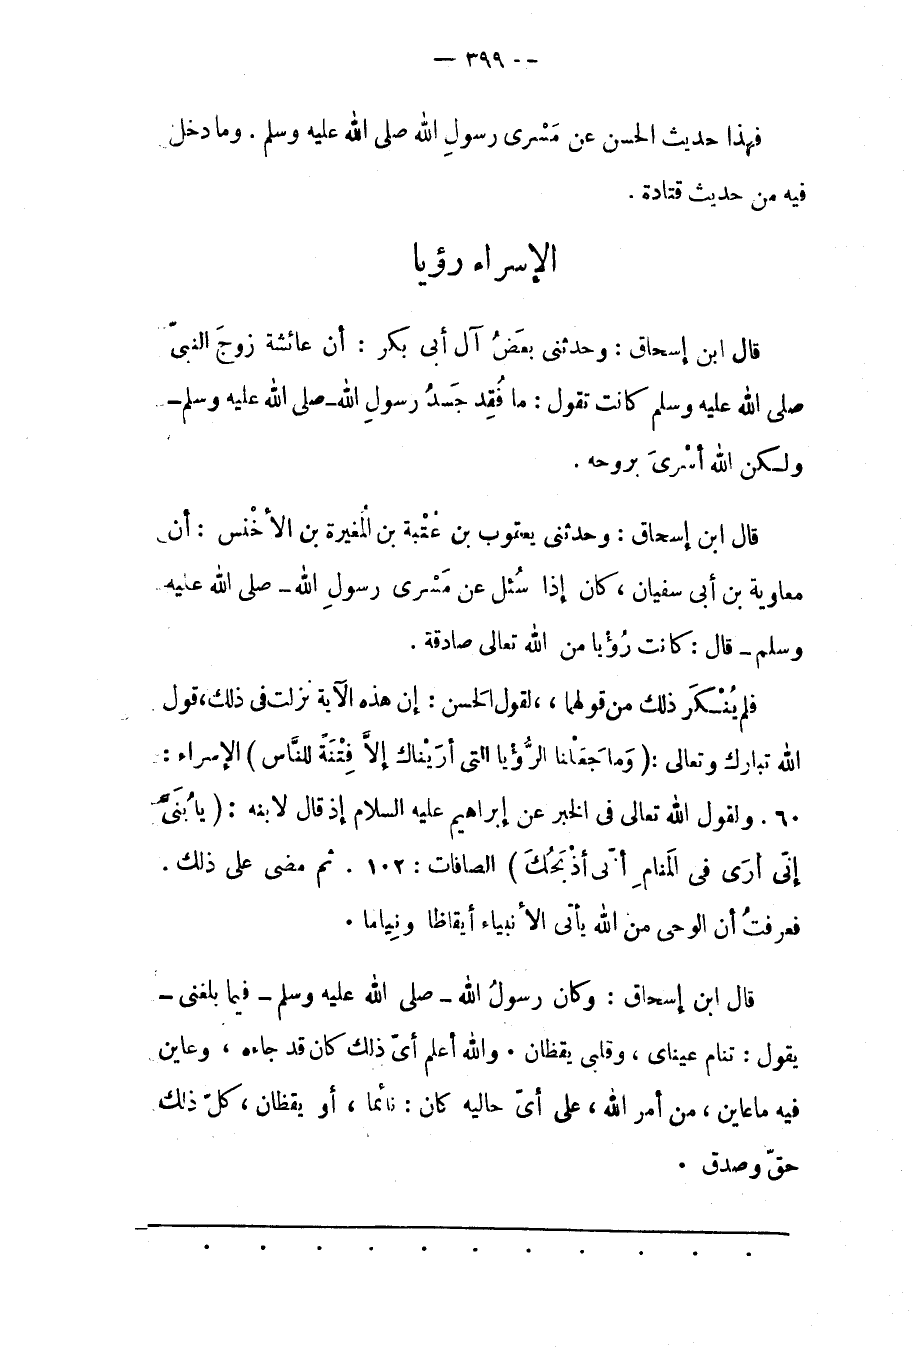 — ٣٩٩ --
فهذا حديث الحسن عن مَسْرى رسولِ الله صلى الله عليه وسلم . وما دخل
فيه من حديث قتادة .
الإسراء رؤيا
قال ابن إسحاق : وحدثنى بعَضُ آل أبى بكر : أن عائشة زوجَ النبىّ
صلى الله عليه وسلم كانت تقول : ما فُقِد جَسدُ رسولِ الله ــ صلى الله عليه وسلم ــ
ولـكن الله أسْرىَ بروحه .
قال ابن إسحاق : وحدثنى يعقوب بن عُتْبة بن المُغيرة بن الأخْنس : أن
معاوية بن أبى سفيان ، كان إذا سُئل عن مَسْرى رسولِ الله ــ صلى الله عليه
وسلم ــ قال : كانت رُؤْيا من الله تعالى صادقة .
فلم يُنْـكَر ذلك من قولهما ، ،لقول الحسن : إن هذه الآية نزلت فى ذلك ، قول
الله تبارك وتعالى : ( وَما جَعَلْنا الرُّؤْيا التى أرَيْناك إلاَّ فِتْنَةً للنَّاس ) الإسراء :
٦٠ . ولقول الله تعالى فى الخبر عن إبراهيم عليه السلام إذ قال لابنه : ( يا بُنَىَّ
إنّى أرَى فى المَنامِ أنّى أذْبَحُكَ ) الصافات : ١٠٢ . ثم مضى على ذلك .
فعرفتُ أن الوحى من الله يأتى الأنبياء أيقاظا ونِياما .
قال ابن إسحاق : وكان رسولُ الله ــ صلى الله عليه وسلم ــ فيما بلغنى ــ
يقول : تنام عيناى ، وقلبى يقظان . والله أعلم أىّ ذلك كان قد جاءه ، وعاين
فيه ما عاين ، من أمر الله ، على أىّ حاليه كان : نائما ، أو يقظان ، كلّ ذلك
حقّ وصدق .
. . . . . . . . . . .